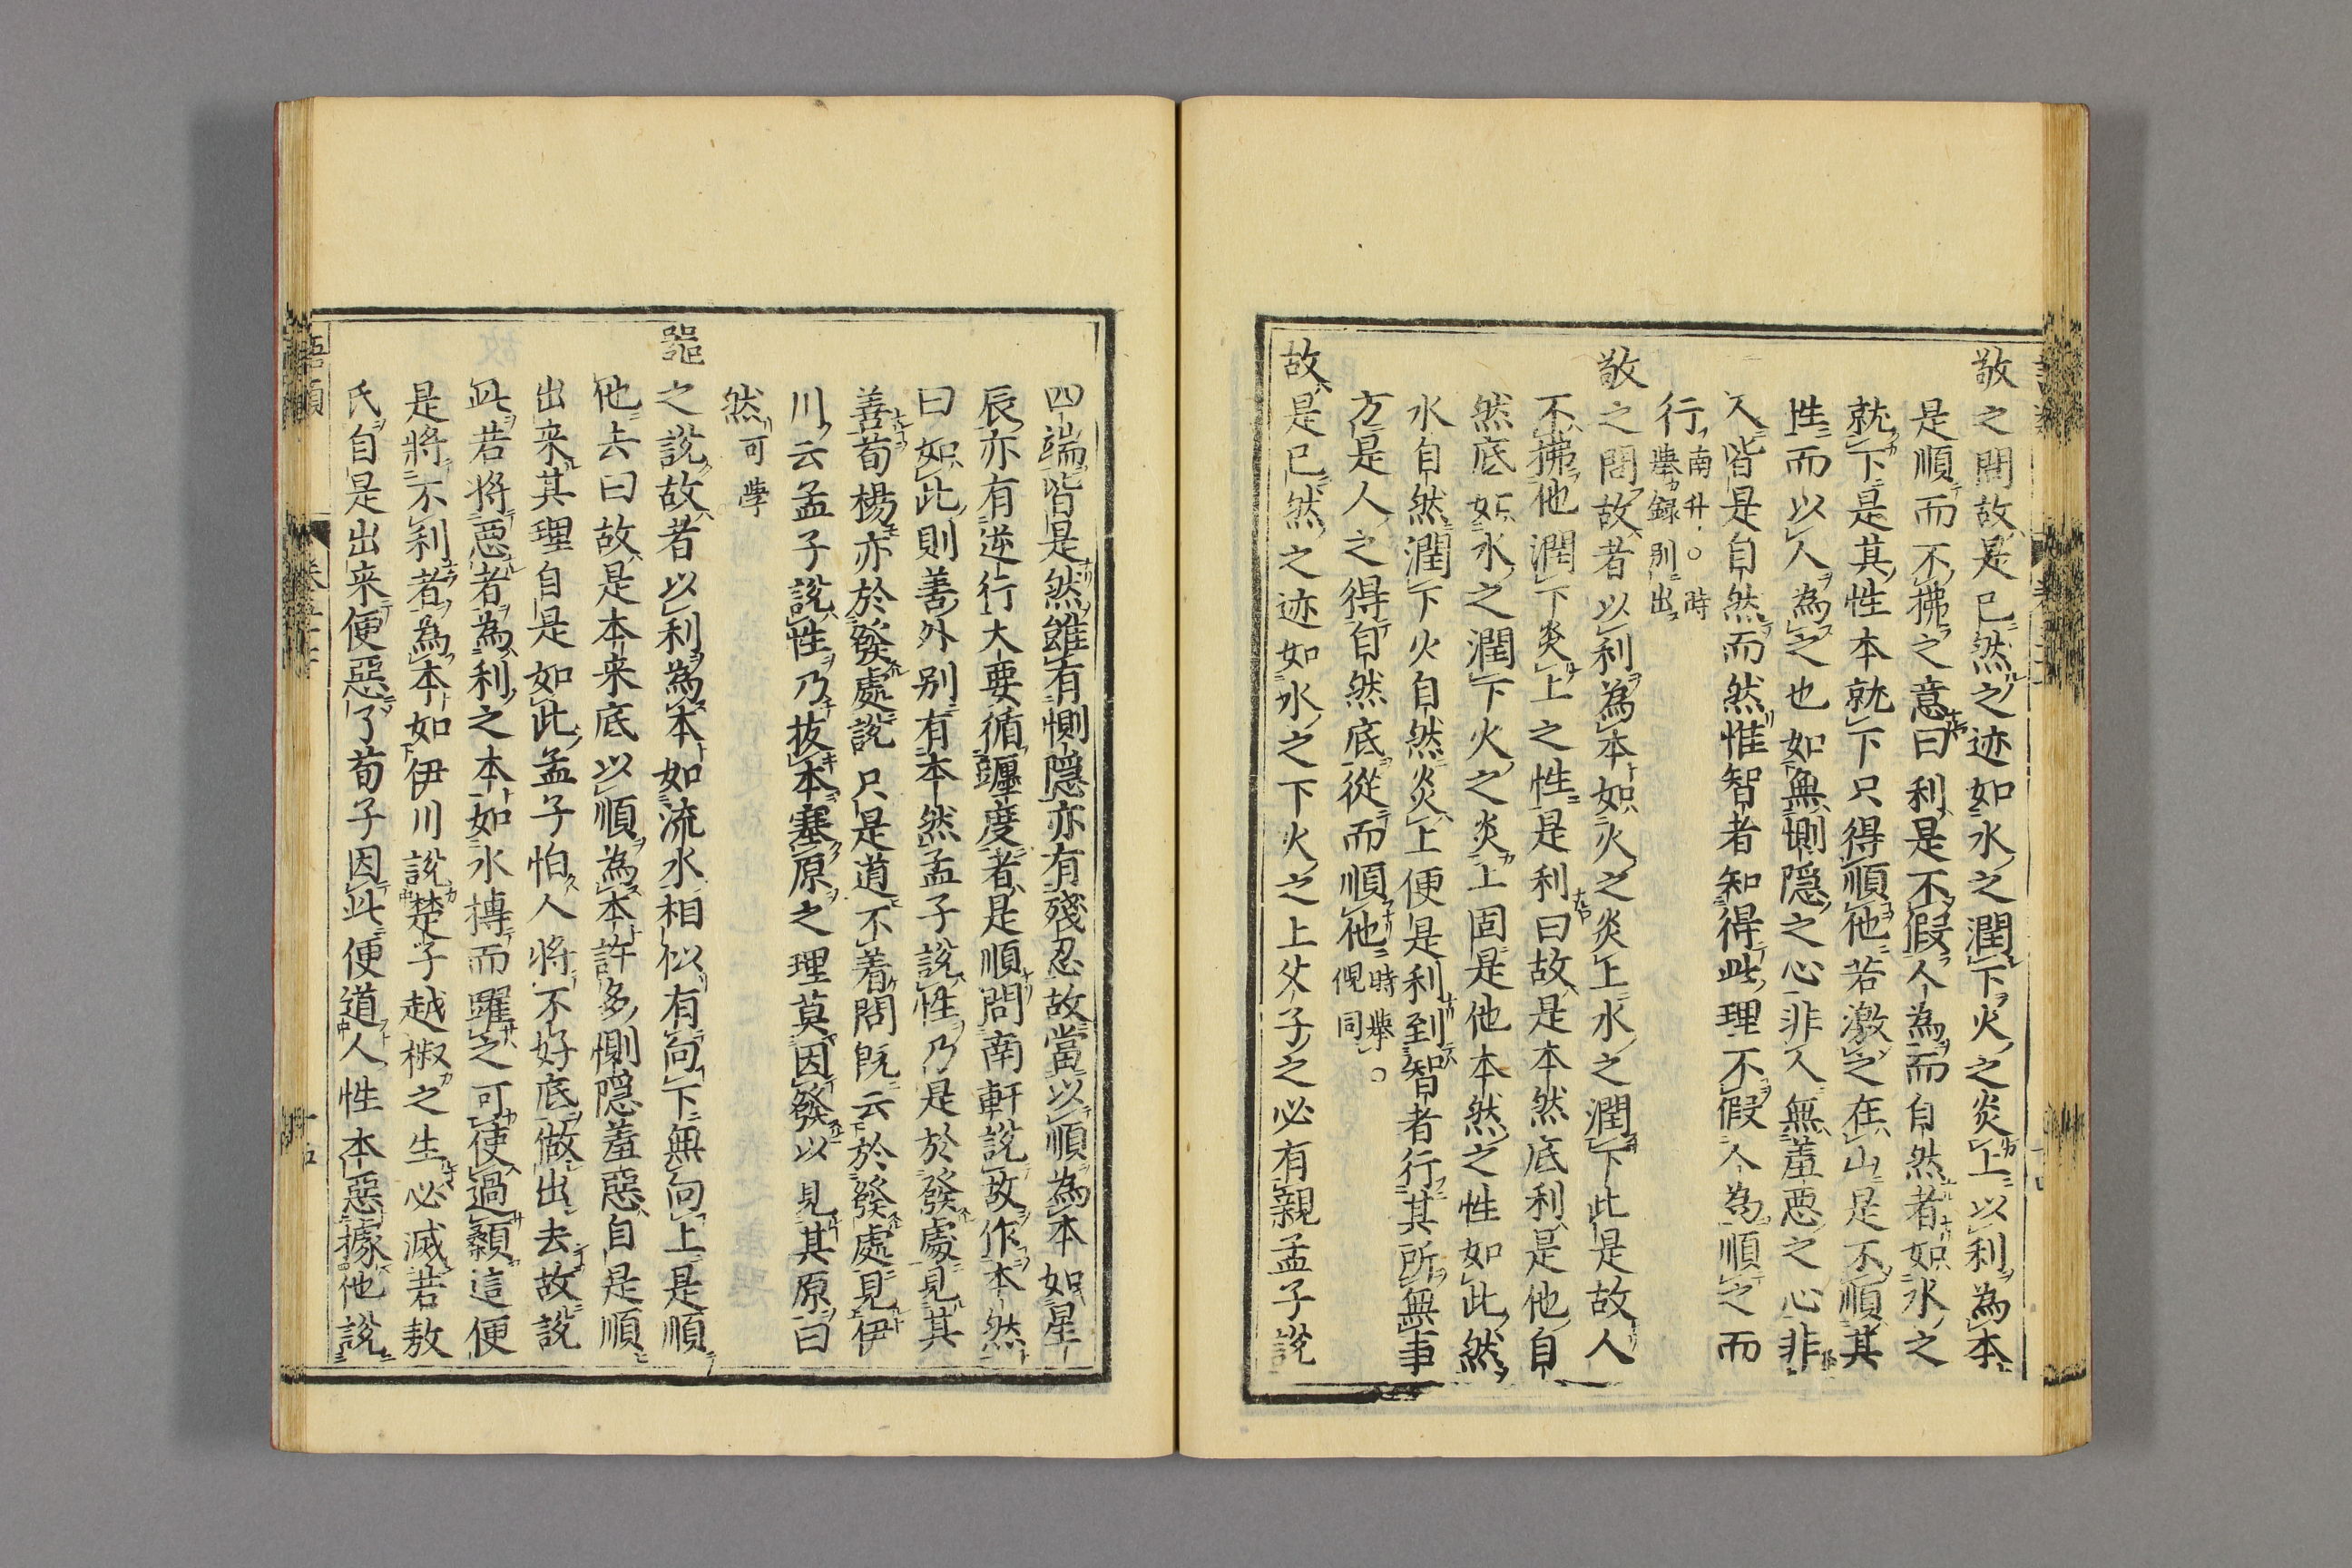 敬之問故是已然之迹如水之潤下火之炎上以利為本
是順而不拂之意曰利是不假人為而自然者如水之
就下是其性本就下只得順他若激之在山是不順其
性而以人為之也如無惻隠之心非人無羞悪之心非
人皆是自然而然惟智者知得此理不假人為順之而
行南升○時
舉録別出
敬之問故者以利為本如火之炎上水之潤下此是故人
不拂他潤下炎上之性是利曰故是本然底利是他自
然底如水之潤下火之炎上固是他本然之性如此然
水自然潤下火自然炎上便是利到智者行其所無事
方是人之得自然底從而順他時舉○
僩同
故是已然之迹如水之下火之上父子之必有親孟子説
四端皆是然雖有惻隠亦有殘忍故當以順為本如星
辰亦有逆行大要循躔度者是順問南軒説故作本然
曰如此則善外别有本然孟子説性乃是於發處見其
善荀楊亦於發處説只是道不着問既云於發處見伊
川云孟子説性乃拔本塞原之理莫因發以見其原曰
然可學
器之説故者以利為本如流水相似有向下無向上是順
他去曰故是本来底以順為本許多惻隠羞惡自是順
出来其理自是如此孟子怕人將不好底做出去故説
此若將悪者為利之本如水搏而躍之可使過顙這便
是將不利者為本如伊川説楚子越椒之生必滅若敖
氏自是出来便惡了荀子因此便道人性本惡據他説
語類